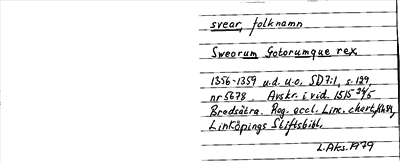 svear, folknamn
Sweorum Gotorumque rex
1356-1359 u.d. u.o. SD 7:1, s. 129,
nr 5678. Avskr. i vid. 1515 24/5
Bredsätra. Reg. eccl. Linc. chart,
Linköpings Stiftsbibl.
L.Aks. 1979